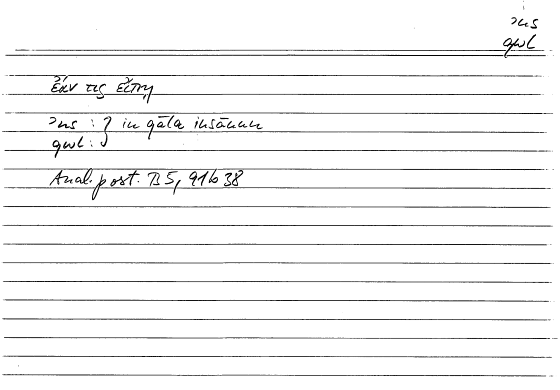 ʾns
qwl
ἐάν τις εἴπῃ
ʾns : } in qāla insānun
qwl :
Anal. post. B 5, 91b 38